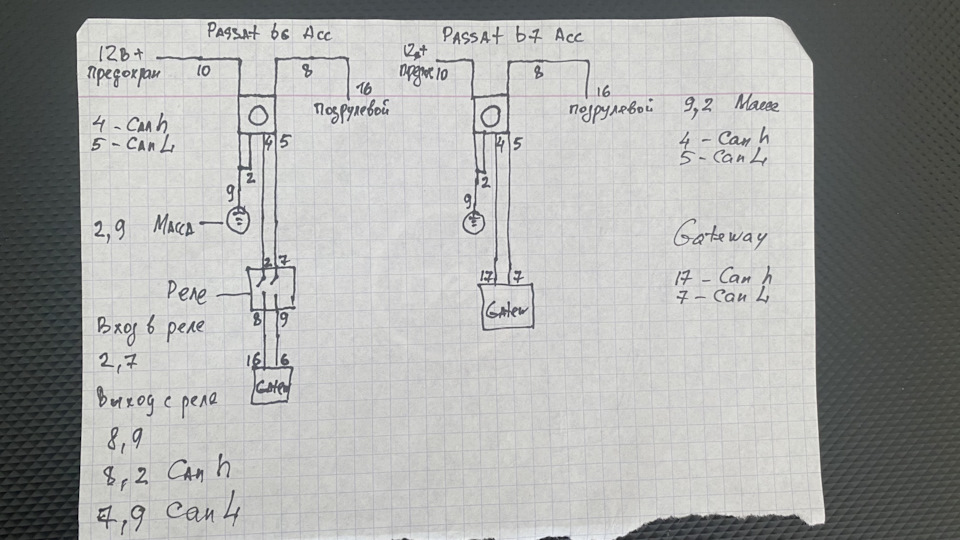 PASSAt b6 Acc
12В+
предохран
10
8
16
Подрулевой
4 - Can h
5 - Can L
4
5
2
9
2,9 Масса
2
7
Реле
8
9
Вход в реле
2,7
16
6
Gatew
Выход с реле
8,9
8,2 Can h
7,9 Can L
PASSAt b7 Acc
12в+
10
8
16
подрулевой
4
5
2
9
17
7
Gatew
9,2 Масса
4 - Can h
5 - Can L
Gateway
17 - Can h
7 - Can L